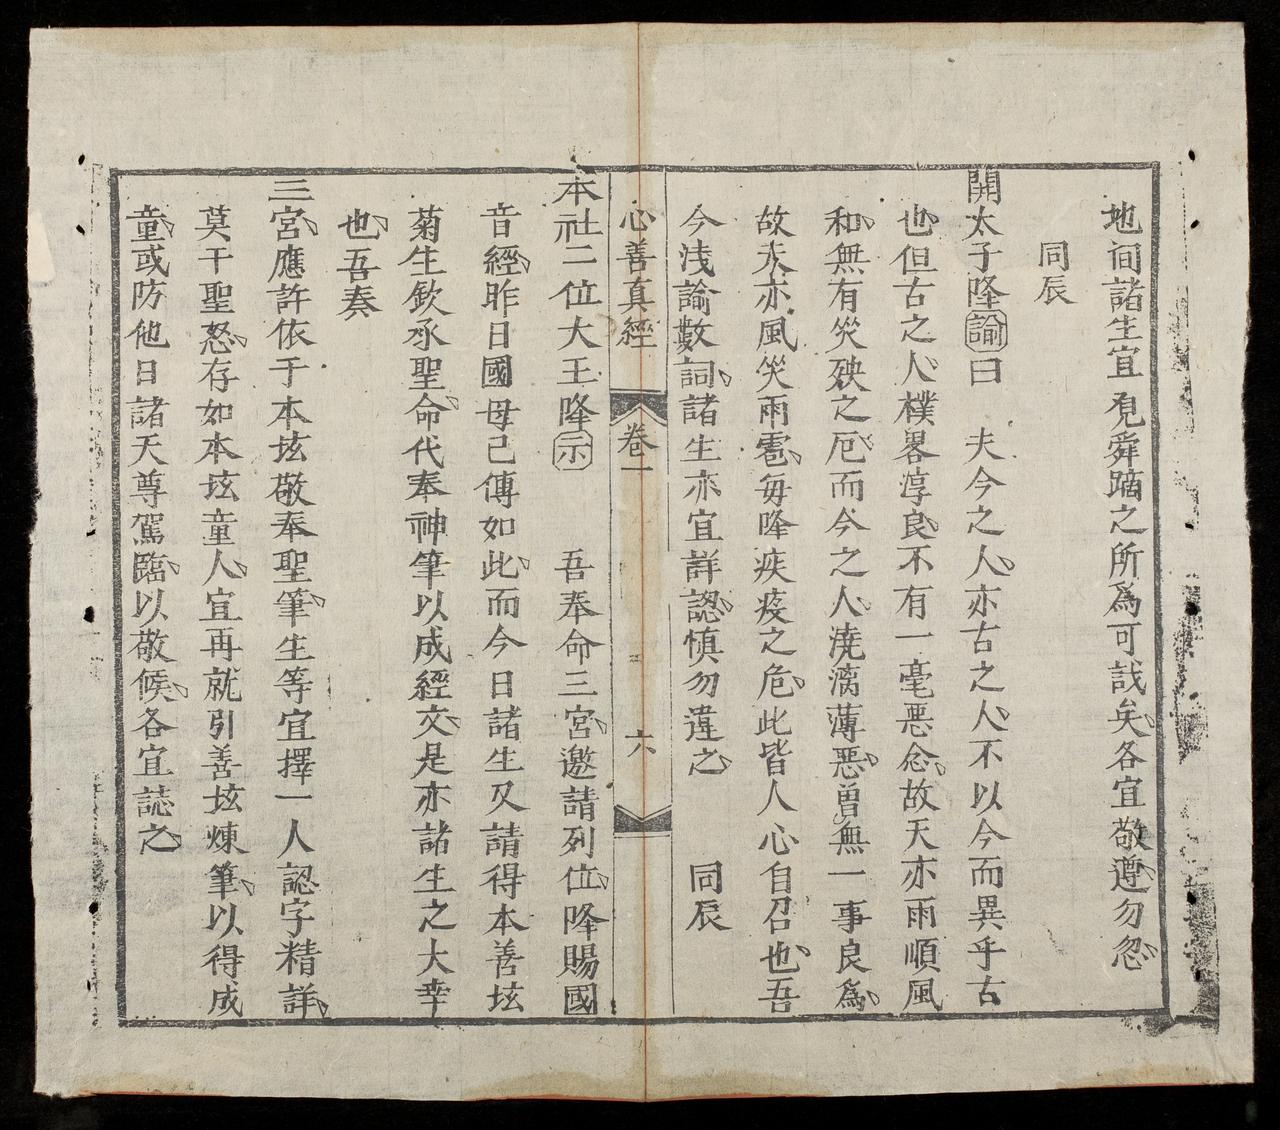 地間諸生宜覔舜蹢之所爲可哉矣各宜敬遵勿忽
同辰
開太子降諭曰　夫今之人亦古之人不以今而異乎古
也但古之人樸畧淳良不有一毫悪念故天亦雨順風
和無有災殃之厄而今之人澆漓薄悪曽無一事良爲
故天亦風災雨雹每降疾疫之危此皆人心自召也吾
今浅諭數詞諸生亦宜詳認慎勿違之　同辰
心善真經　卷一　六
本社二位大王降示　吾奉命三宮邀請列位降賜國
音經昨日國母已傳如此而今日諸生又請得本善垓
菊生欽承聖命代奉神筆以成經文是亦諸生之大幸
也吾奏
三宮應許依于本垓敬奉聖筆生等宜擇一人認字精詳
莫干聖怒存如本垓童人宜再就引善垓煉筆以得成
童或防他日諸天尊駕臨以敬候各宜誌之